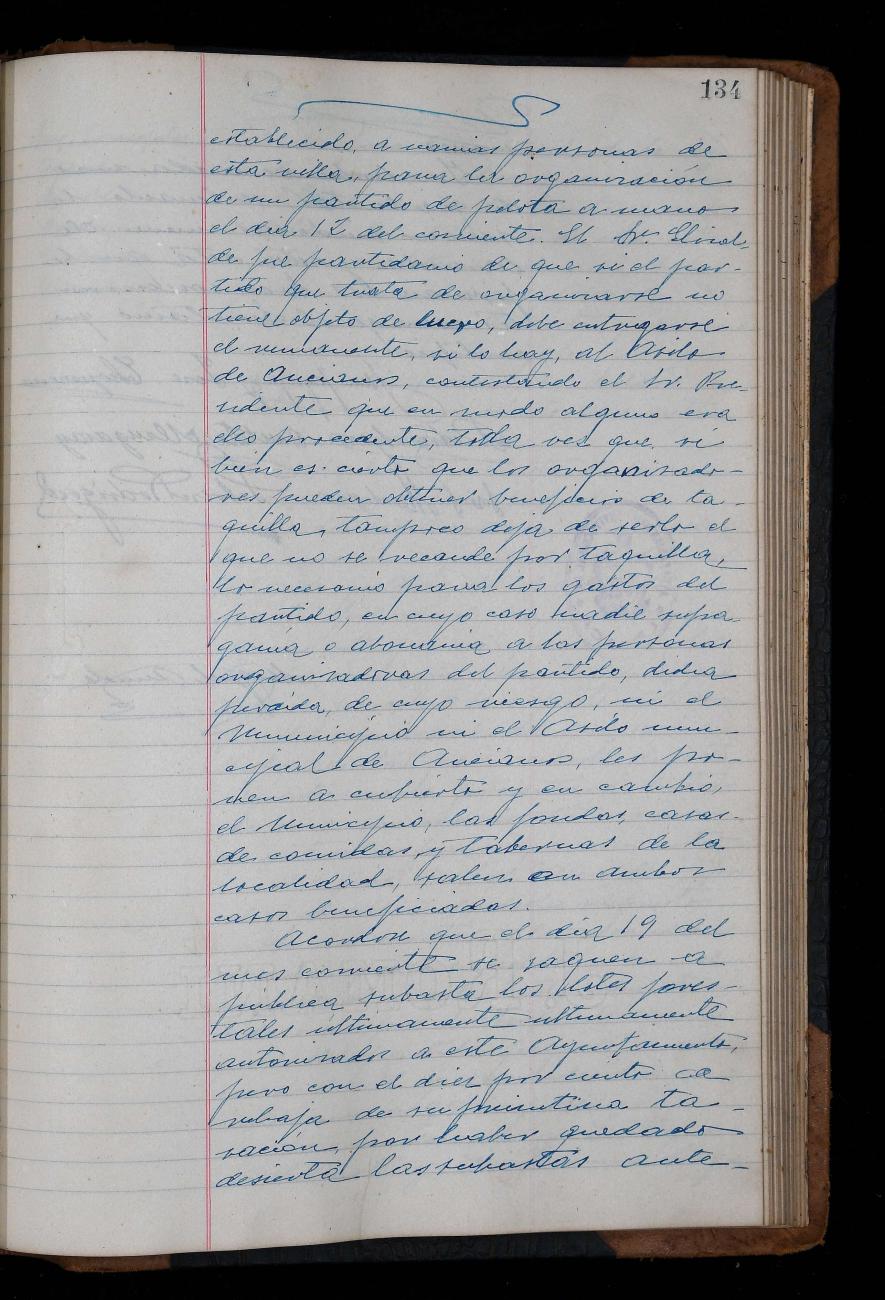 134
establecido, a varias personas de
esta villa, para la organización
de un partido de pelota a mano
el dia 12 del corriente. El Sr.
de fue partidario de que si el par-
tido que trata de organizarse no
tiene objeto de lucro, debe entregarse
el remanente, si lo hay, al Asilo
de Ancianos, contestando el Sr. Pre-
sidente que en modo alguno era
ello procedente, toda vez que, si
bien es cierto que los organizado-
res pueden obtener beneficio de ta-
quilla, tampoco deja de serlo el
que no se recaude por taquilla,
lo necesario para los gastos del
partido, en cuyo caso nadie supa-
garia o abonaria a las personas
organizadoras del partido, dicha
perdida, de cuyo riesgo, ni el
Municipio ni el Asilo muni-
cipal de Ancianos, les po-
nen a cubierto y en cambio,
el Municipio, las fondas, casas
de comidas, y tabernas de la
localidad, salen en ambos
casos beneficiados.
Acordose que el dia 19 del
mes corriente se saquen a
publica subasta los lotes fores-
tales ultimamente ultimamente
autorizados a este Ayuntamiento,
pero con el diez por ciento de
rebaja de su primitiva ta-
sación, por haber quedado
desierta las subastas ante-